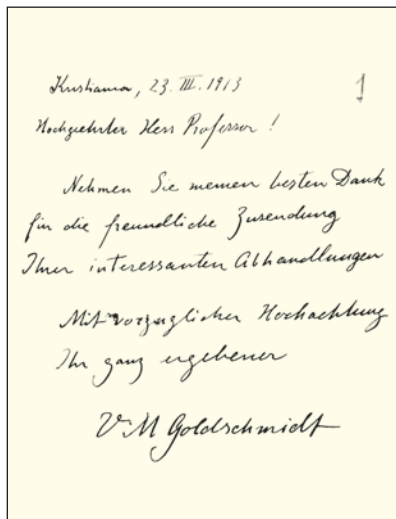 Kristiania, 23. III. 1913
1
Hochgeehrter Herr Professor!
Nehmen Sie meinen besten Dank
für die freundliche Zusendung
Ihrer interessanten Abhandlungen
Mit vorzüglicher Hochachtung
Ihr ganz ergebener
V. M Goldschmidt